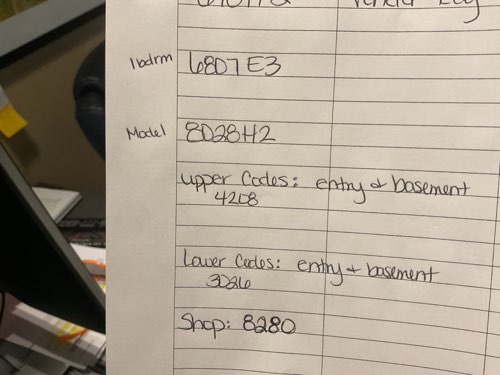 1bdrm 6807E3
Model 8D28H2
upper Codes: entry & basement
42C8
Lower Codes: entry + basement
3D26
Shop: 8280